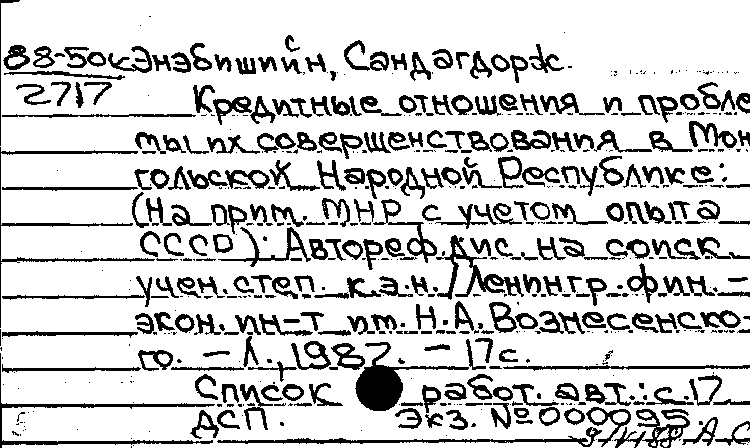 88-50к Энэбишийн, Сандагдорж.
2717
Кредитные отношения и пробле
мы их совершенствования в Мон
гольской Народной Республике:
(На прим. МНР с учетом опыта
СССР): Автореф. дис. на соиск.
учен. степ. к.э.н. / Ленингр. фин.-
экон. ин-т им. Н.А. Вознесенско-
го. – Л., 1987. – 17 с.
Список работ. авт.: с. 17
ДСП. Экз. № 000095.